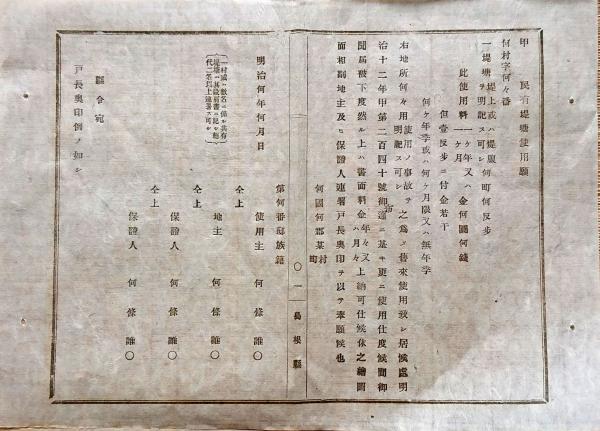 甲　民有堤塘使用願
何村字何々番
一堤塘 堤上或ハ堤腹何町何反歩ヲ明記スヘシ
此使用料 一ケ年又ハ一ケ月 金何圓何錢
但壹反歩ニ付金若干
何ケ年季或ハ何ケ月限又ハ無年季
右地所何々用 使用ノ事故ヲ明記スヘシ 之為メ借來使用致シ居候處明
治十二年甲第二百四十號御布達ニ基キ更ニ使用仕度候間御
聞届被下度然ル上ハ書面料金 年々又ハ月々 上納可仕候依之繪圖
面相副地主及ヒ保證人連署戸長奥印ヲ以テ奉願候也
何國何郡某村町
第何番邸族籍
明治何年何月日
使用主　何條誰〇
仝上
地主　何條誰〇
仝上
保證人　何條誰〇
仝上
保證人　何條誰〇
縣令宛
戸長奥印例ノ如シ
〇一
島根縣